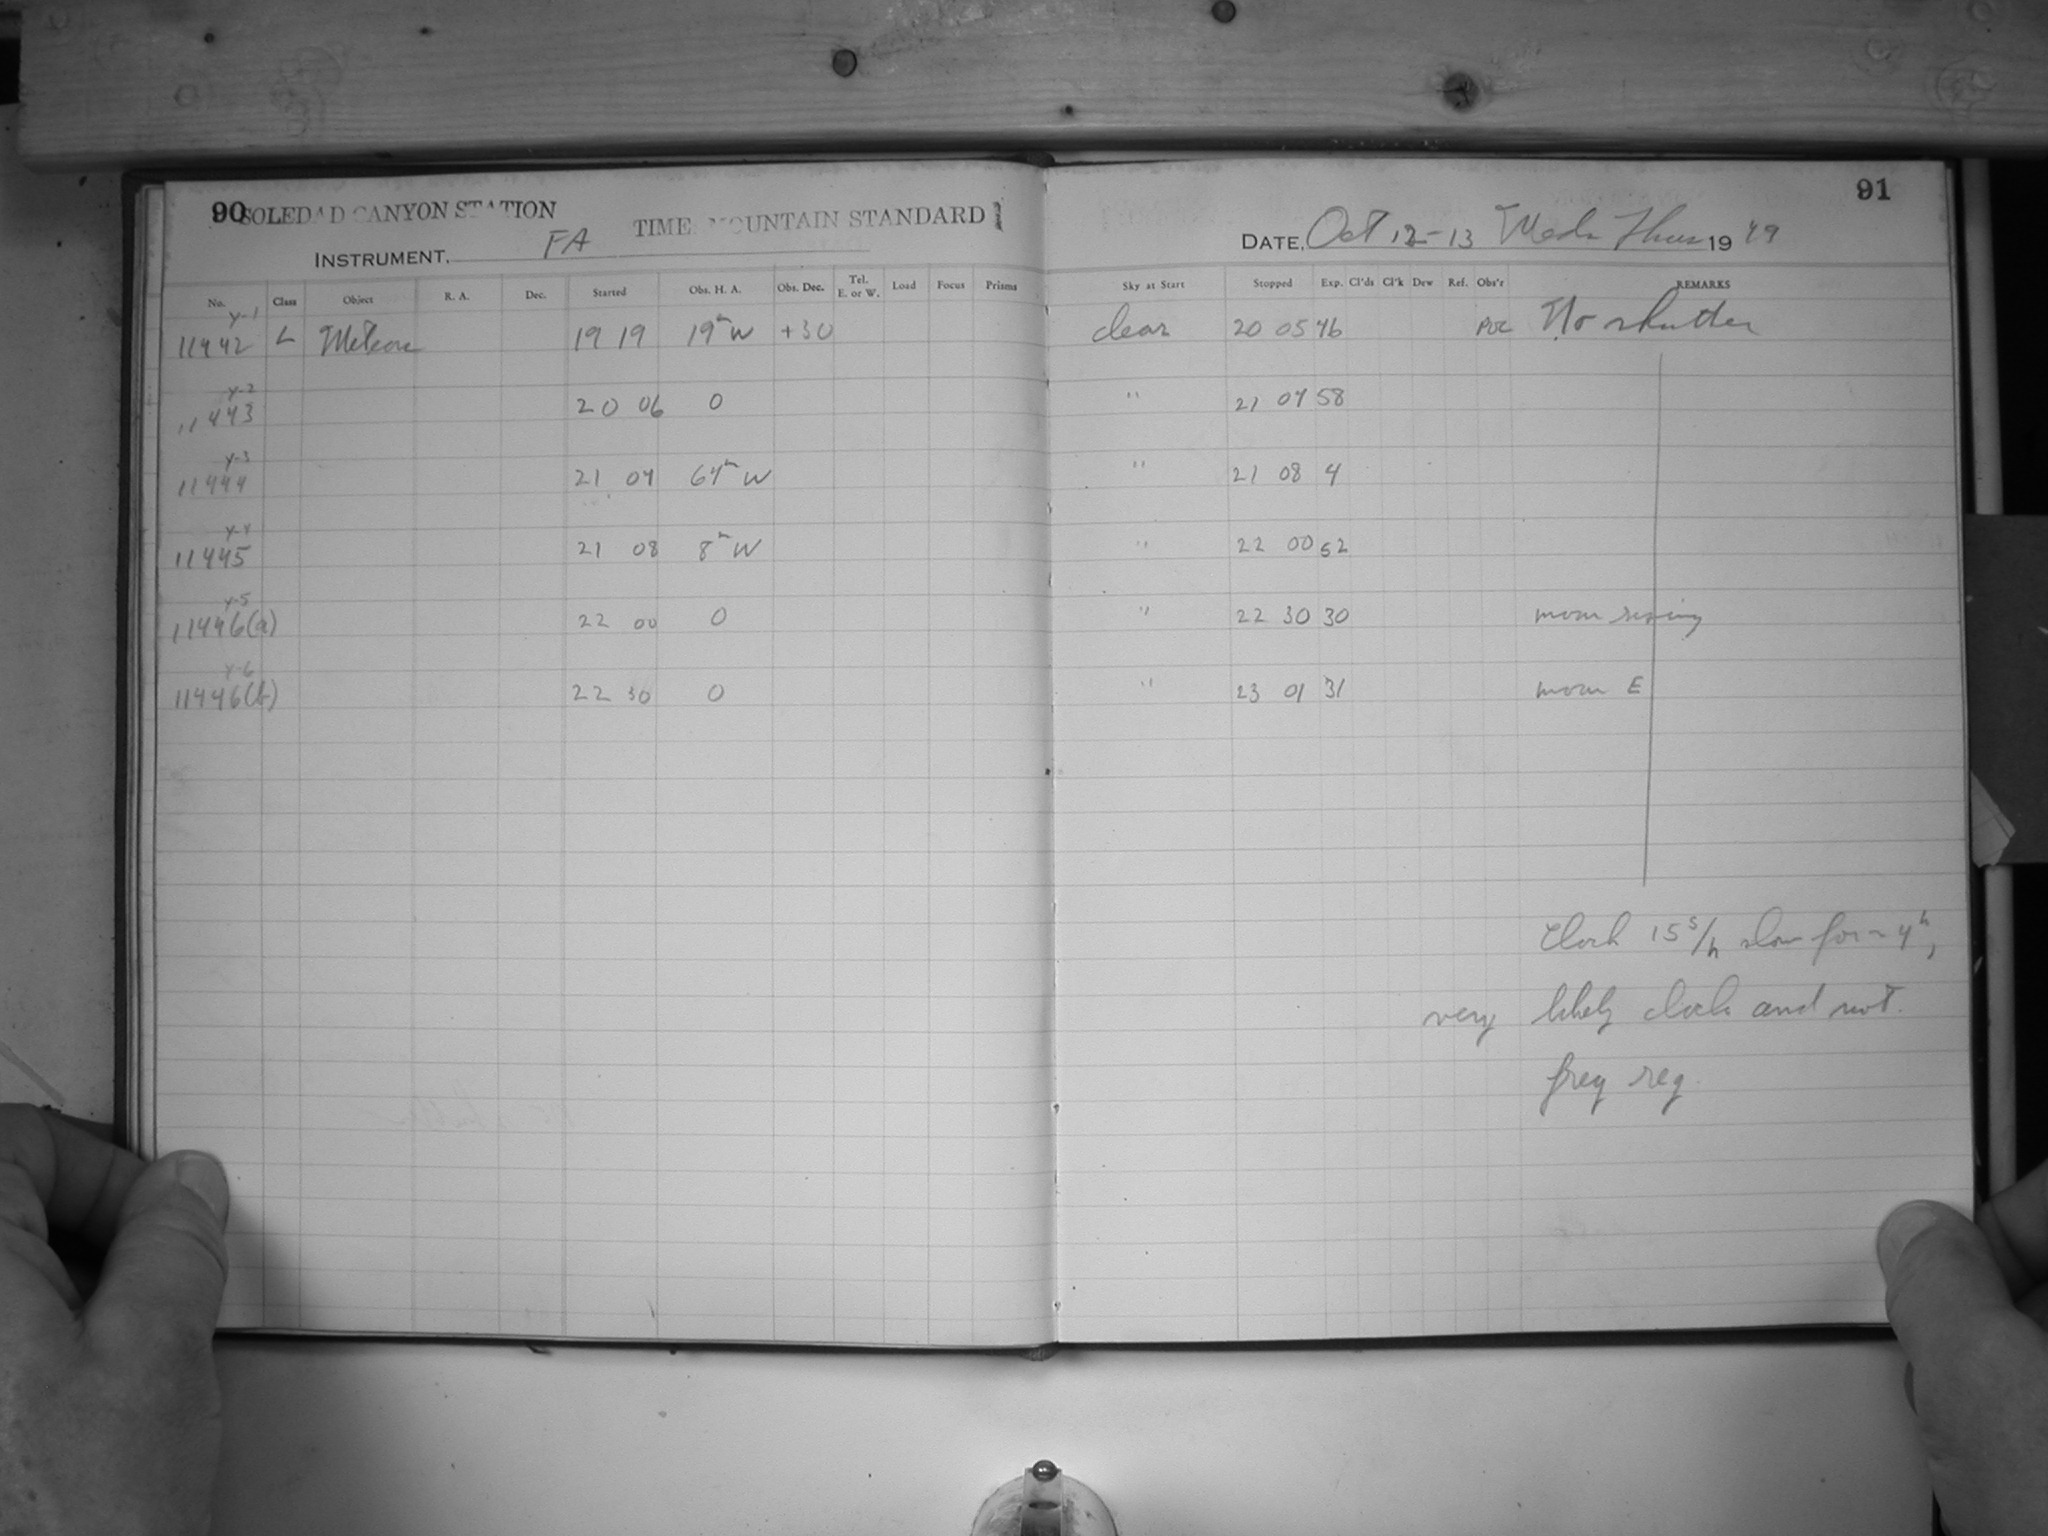 90 SOLEDAD CANYON STATION TIME, MOUNTAIN STANDARD
INSTRUMENT, FA
No. Class Object R. A. Dec. Started Obs. H. A. Obs. Dec. Tel. E. or W. Load Focus Prisms
Y-1
11442 L Meteors 19 19 19m W +30
Y-2
11443 20 06 0
Y-3
11444 21 04 64m W
Y-4
11445 21 08 8m W
Y-5
11446(a) 22 00 0
Y-6
11446(b) 22 30 0
91
DATE, Oct 12-13 Wed-Thurs 1949
Sky at Start Stopped Exp. Cl'ds Cl'k Dew Ref. Obs'r REMARKS
clear 20 05 46 No shutter
" 21 04 58
" 21 08 4
" 22 00 52
" 22 30 30 moon rising
" 23 01 31 moon E
Clock 15s/h slow for ~ 4h,
very likely clock and not
freq reg.